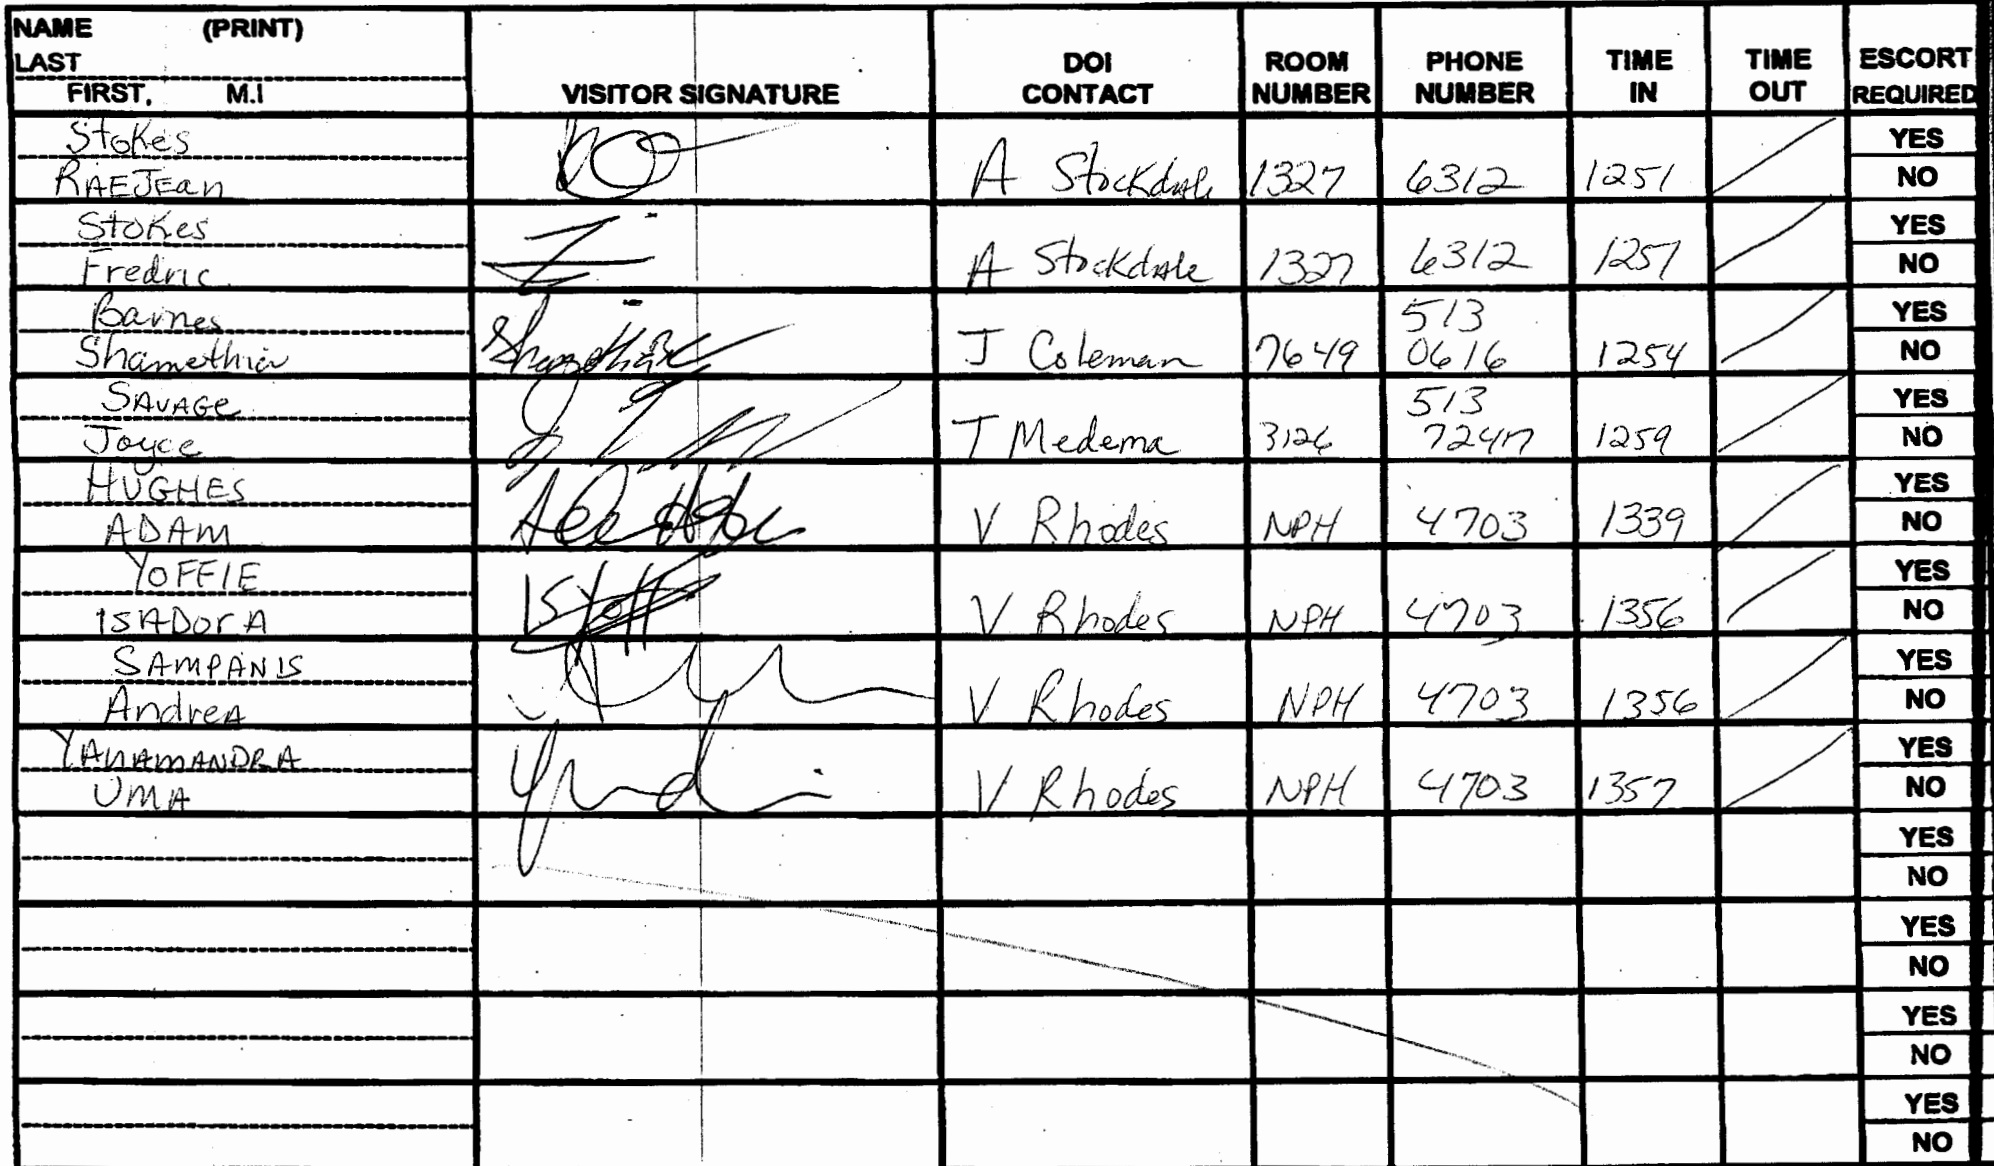 NAME (PRINT)
LAST
FIRST, M.I
VISITOR SIGNATURE
DOI CONTACT
ROOM NUMBER
PHONE NUMBER
TIME IN
TIME OUT
ESCORT REQUIRED
Stokes
RAEJEan
A Stockdale 1327 6312 1251
YES
NO
Stokes
Fredric
A Stockdale 1327 6312 1251
YES
NO
Barnes
Shamethia
J Coleman 7649 513 0616 1254
YES
NO
SAVAGe
Joyce
T Medema 3126 513 7247 1259
YES
NO
HUGHES
ADAM
V Rhodes NPH 4703 1339
YES
NO
YOFFIE
ISADorA
V Rhodes NPH 4703 1356
YES
NO
SAMPANIS
AndreA
V Rhodes NPH 4703 1356
YES
NO
YANAMANDRA
UMA
V Rhodes NPH 4703 1357
YES
NO
YES
NO
YES
NO
YES
NO
YES
NO